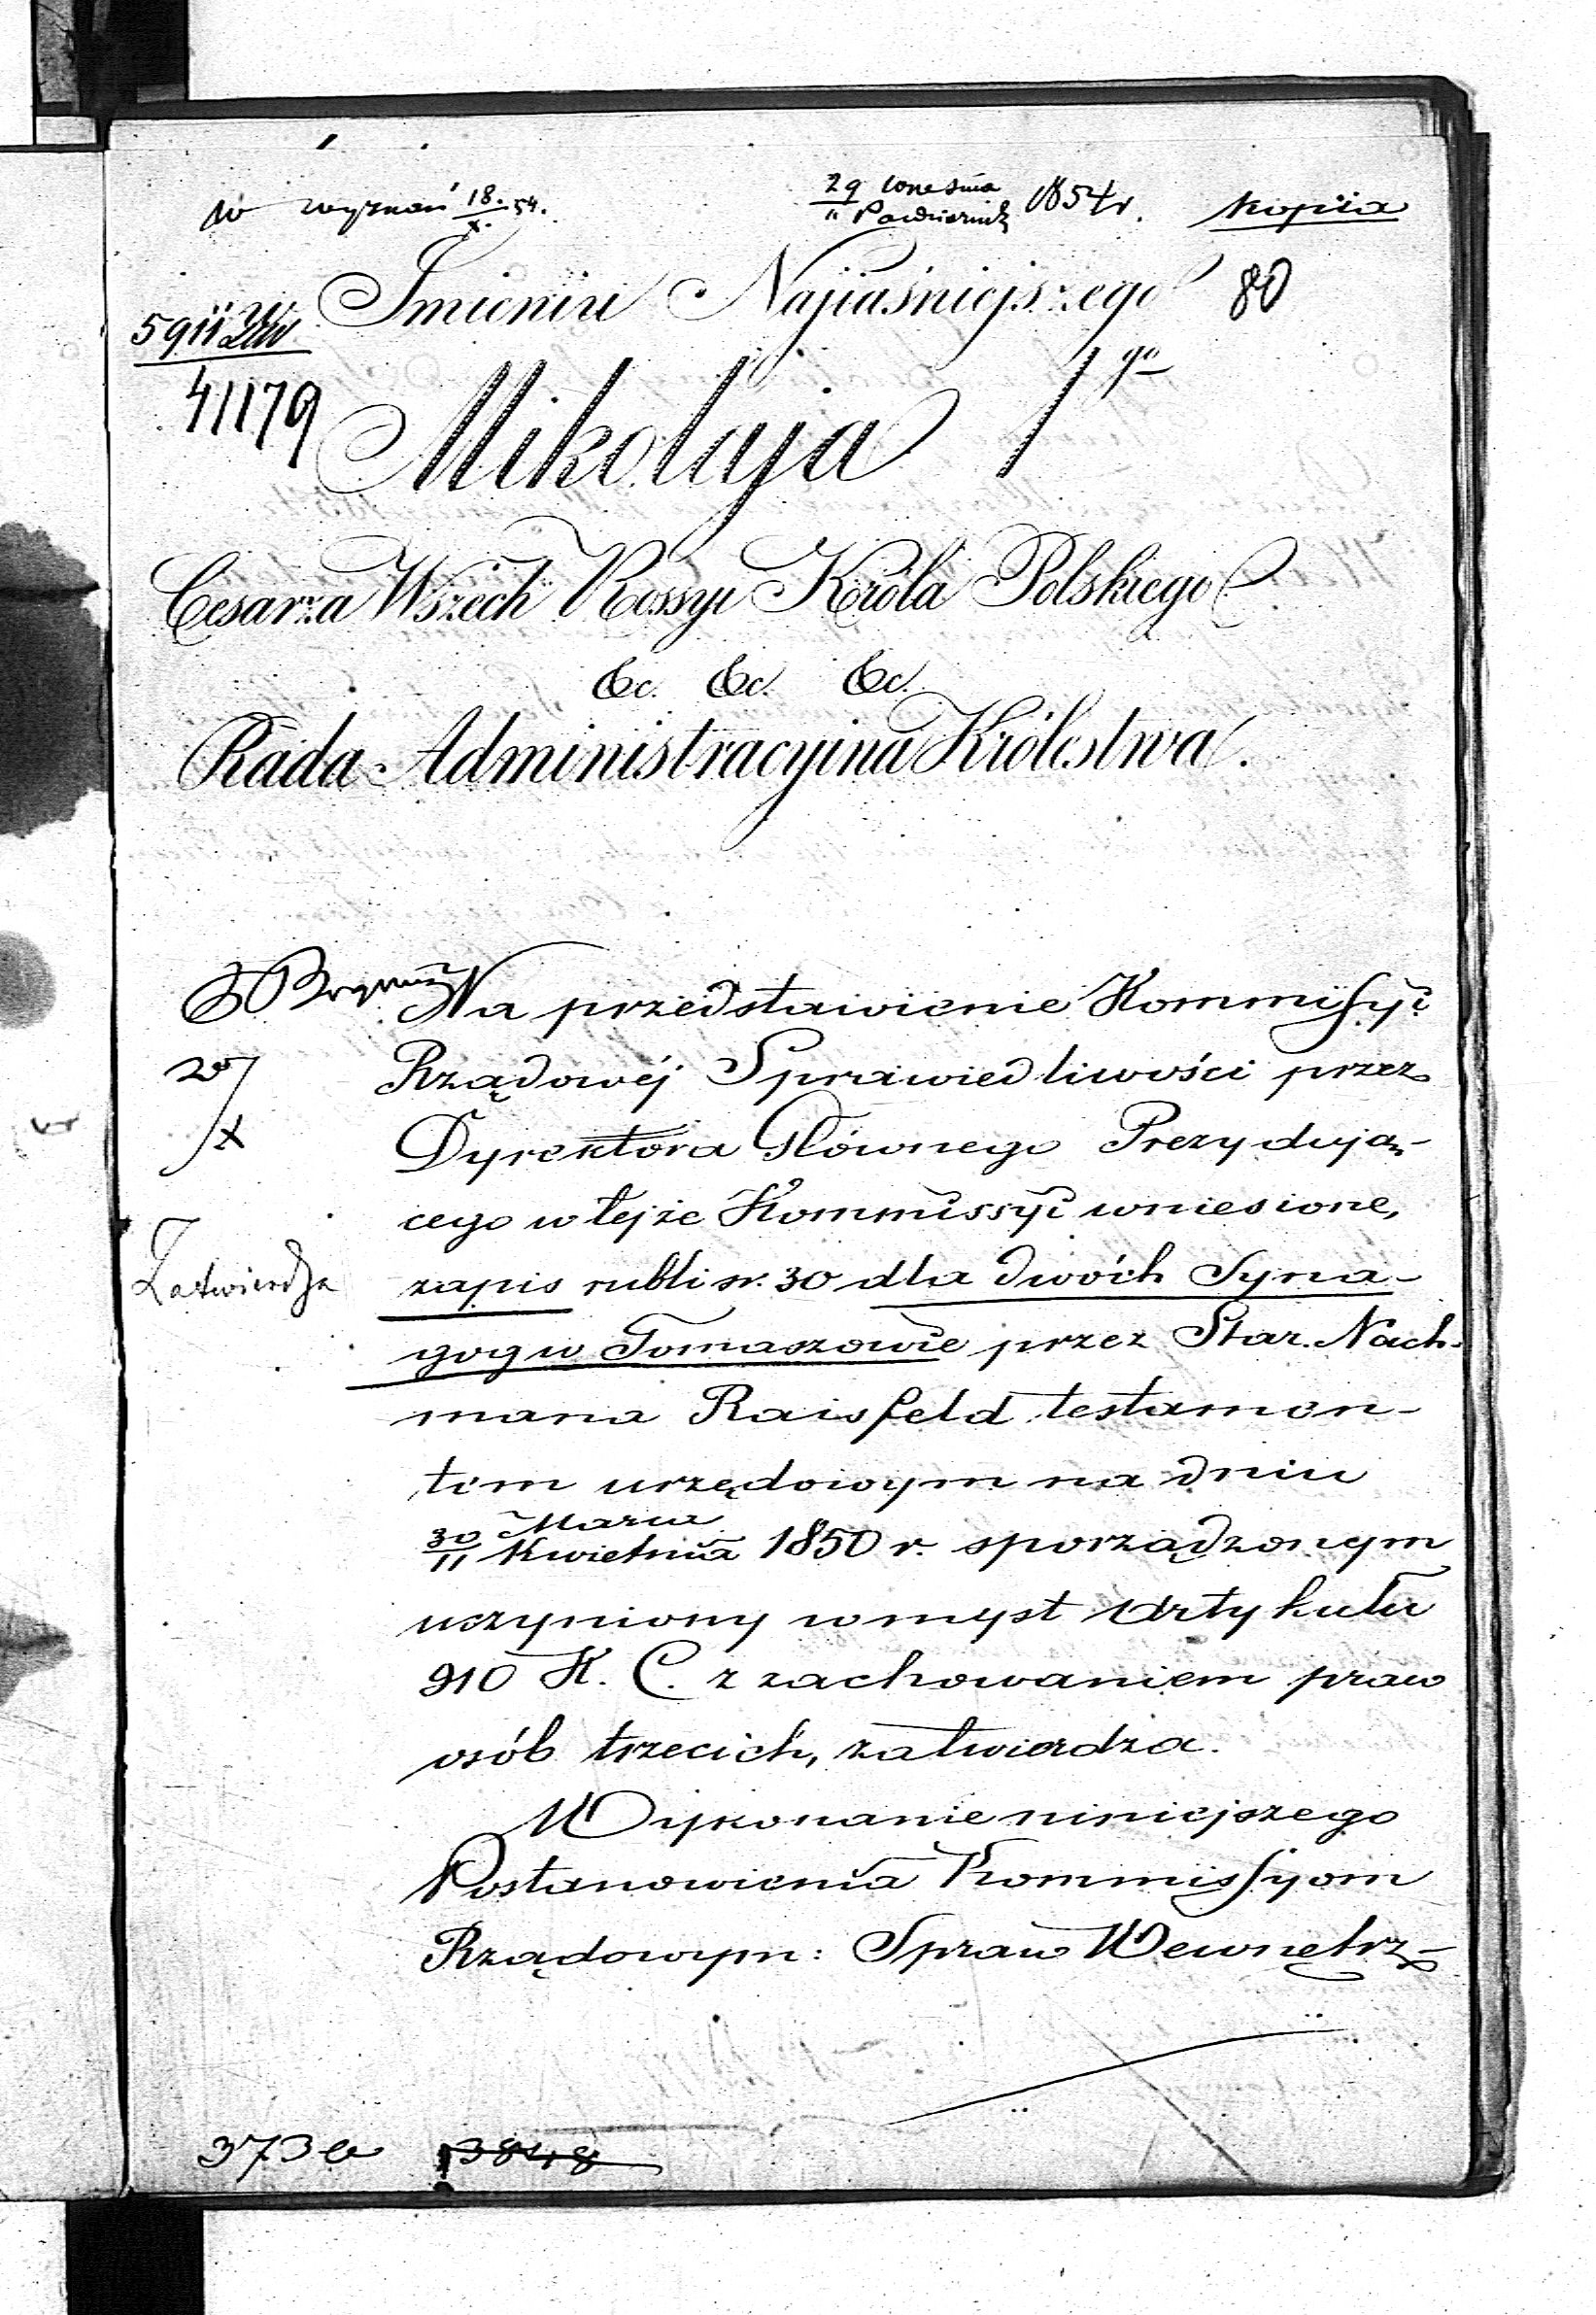 w wyznań 18./X. 54.
29 Września / 11 Październik 1854 r. Kopiia
Imieniu Najiaśniejszego 80
5911
41179
Mikołaja I go
Cesarza Wszech Rossyi Króla Polskiego
&c. &c. &c.
Rada Administracyina Królestwa.
Na przedstawienie Kommissyi
Rządowéj Sprawiedliwości przez
Dyrektora Głównego Prezydują-
cego w tejże Kommissyi wniesione,
Zatwierdza
zapis rubli sr. 30 dla dwóch Syna-
gog w Tomaszowie przez Star. Nach-
mana Raisfeld testamen-
tem urzędowym na dniu
30 Marca / 11 Kwietnia 1850 r. sporządzonym
uczyniony w myśl Artykułu
910 K. C. z zachowaniem praw
osób trzecich, zatwierdza.
Wykonanie niniejszego
Postanowienia Kommissyom
Rządowym: Spraw Wewnętrz-
373 a 3848